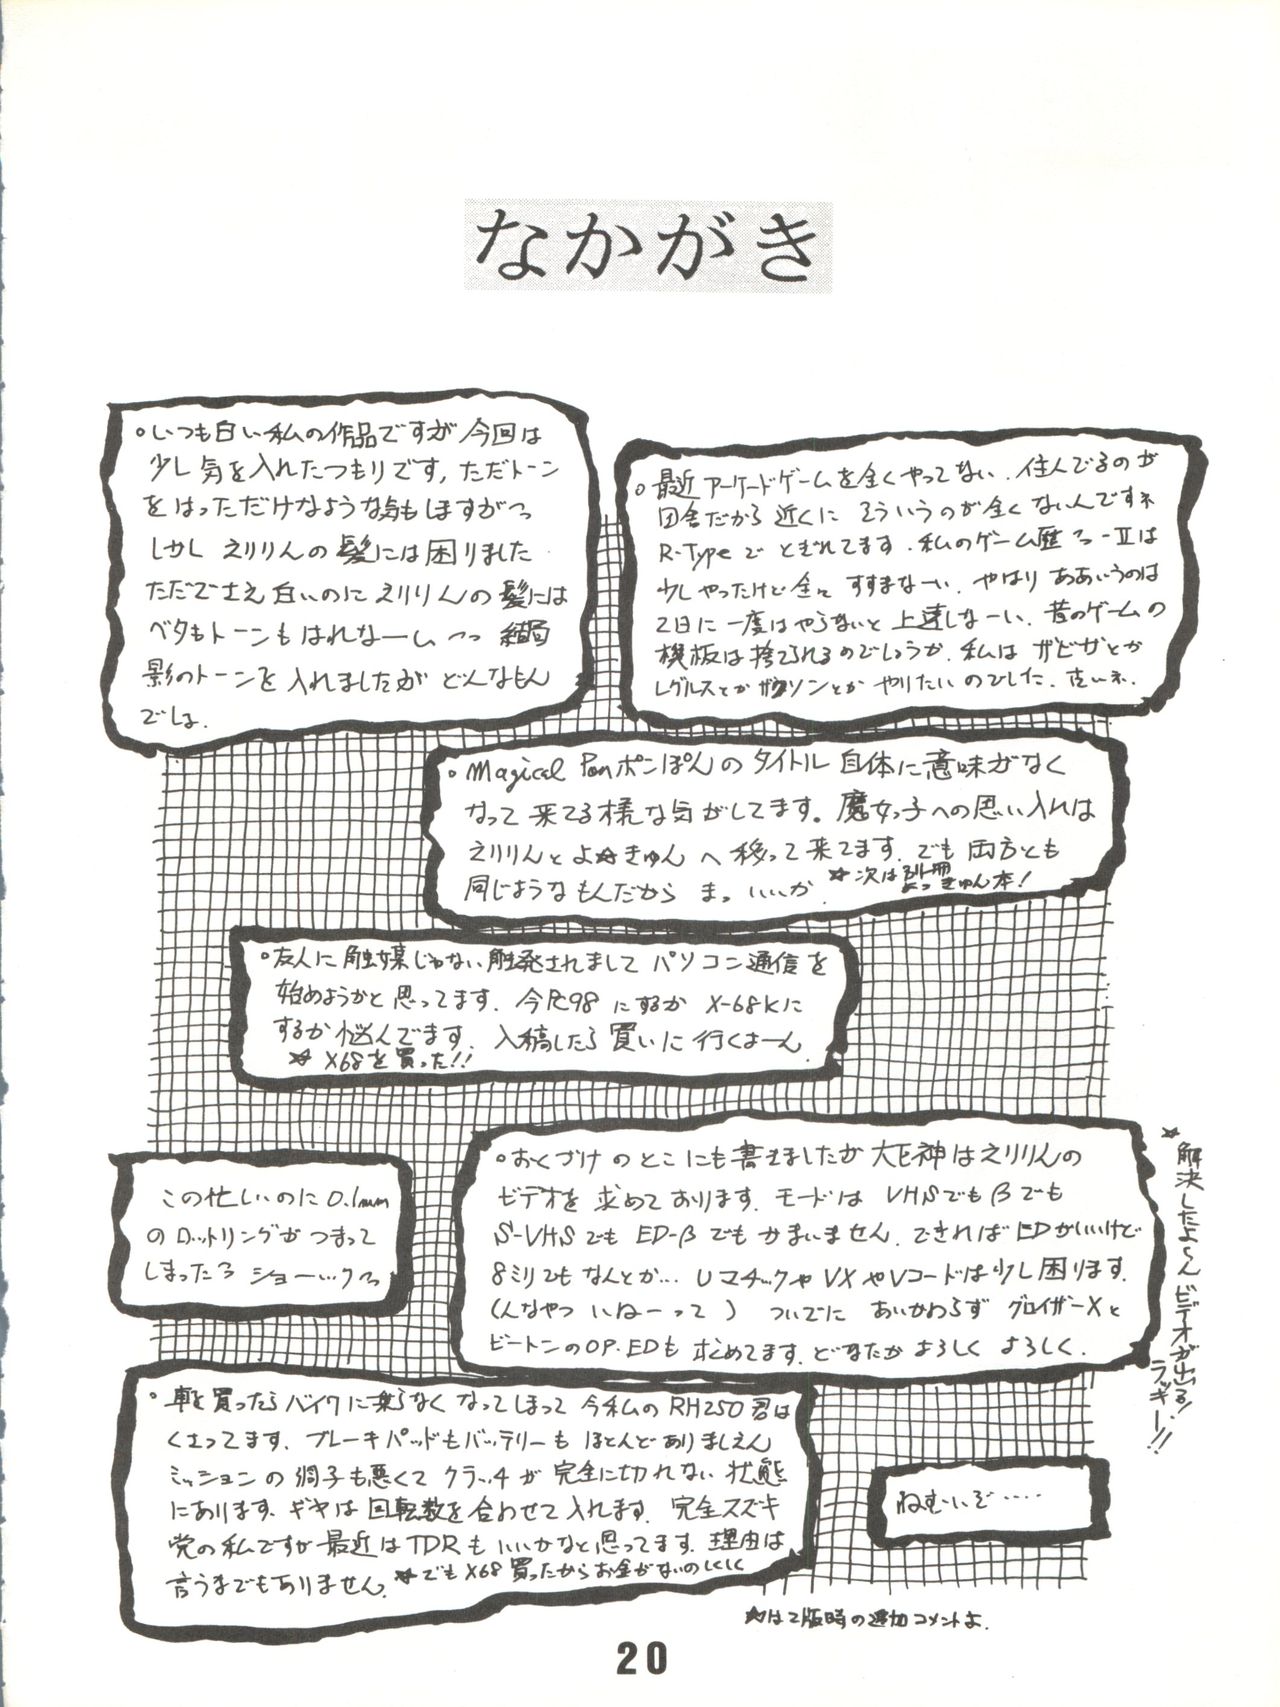 なかがき
。いつも白い私の作品ですが今回は
少し気を入れたつもりです,ただトーン
をはっただけなような気もしますが〜
しかしえりりんの髪には困りました
ただでさえ白いのにえりりんの髪には
ベタもトーンもはれなーい〜 結局
影のトーンを入れましたがどんなもん
でしょ.
。最近アーケードゲームを全くやってない.住んでるのが
田舎だから近くにそういうのが全くないんですネ
R-Typeでとぎれてます.私のゲーム歴〜-IIは
少しやったけど全く すすまなーい.やはりああいうのは
2日に一度はやらないと上達しなーい.昔のゲームの
機板は捨てられるのでしょうか.私はザビガとか
レグルスとかザクソンとかやりたいのでした.古いネ.
。Magical Ponポンぽんのタイトル自体に意味がなく
なって来てる様な気がしてます。魔女っ子への思い入れは
えりりんとよ☆きゅんへ移って来てます.でも両方とも
同じようなもんだから まっいいか.
☆次は別冊
よっきゅん本!
。友人に触媒じゃない触発されましてパソコン通信を
始めようかと思ってます.今PC98にするかX-68Kに
するか悩んでます.入稿したら買いに行くよーん
☆X68を買った!!
この忙しいのに0.1mm
のロットリングがつまって
しまったろ ショーック〜
。おくづけのとこにも書きましたが大巨神はえりりんの
ビデオを求めております.モードはVHSでもβでも
S-VHSでもED-βでもかまいません.できればEDがいいけど
8ミリでもなんとか… UマチックやVXやVコードは少し困ります.
(んなやつ いねーって) ついでに あいかわらず グロイザーXと
ビートンのOP.EDも求めてます.どなたかよろしく よろしく.
☆解決したよ〜ん ビデオが出る!
ラッキー!!
。車を買ったらバイクに乗らなくなってしまって今私のRH250君は
くさってます.ブレーキパッドもバッテリーもほとんどありましぇん
ミッションの調子も悪くてクラッチが完全に切れない状態
にあります.ギヤは回転数を合わせて入れます.完全スズキ
党の私ですが最近はTDRもいいかなと思ってます.理由は
言うまでもありません.☆でもX68買ったからお金がないのしくしく
ねむいぞ……
☆は2版時の追加コメントよ.
20